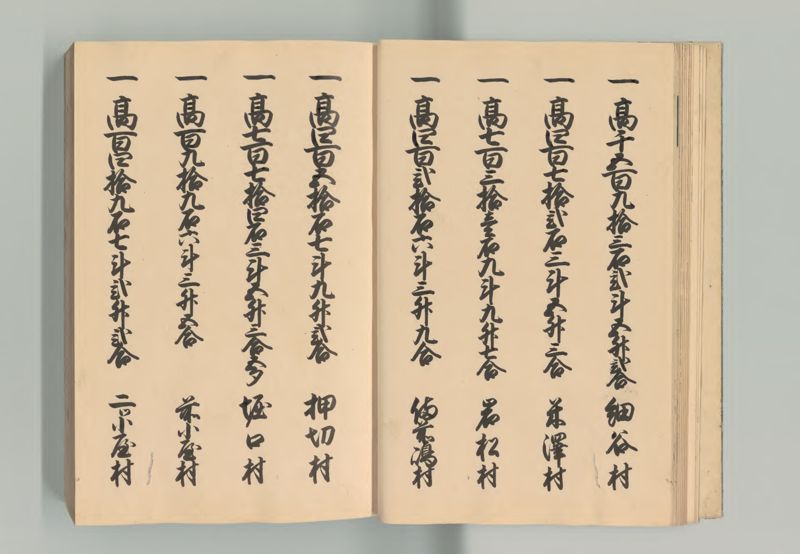 一 高千五百九拾三石弐斗五升弐合 細谷村
一 高四百七拾弐石三斗五升三合 米澤村
一 高七百三拾壱石九斗九升七合 岩松村
一 高四百弐拾石六斗三升九合 備前嶋村
一 高四百五拾石七斗九升弐合 押切村
一 高七百七拾四石三斗五升三合五夕 堀口村
一 高百九拾九石六斗三升五合 前小屋村
一 高百四拾九石七斗弐升弐合 二ツ小屋村